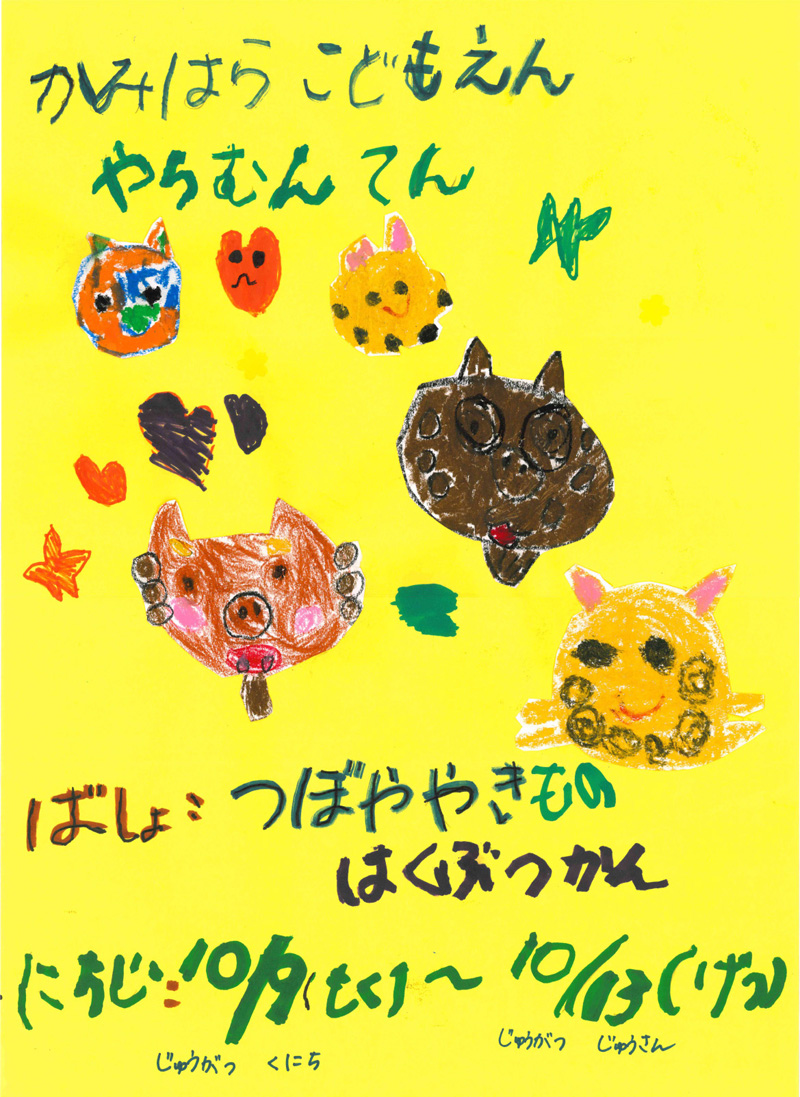 かみはら こどもえん
やちむん てん
ばしょ: つぼややきもの
はくぶつかん
にちじ: 10/9(もく)〜 10/13(げつ)
じゅうがつ くにち じゅうがつ じゅうさん